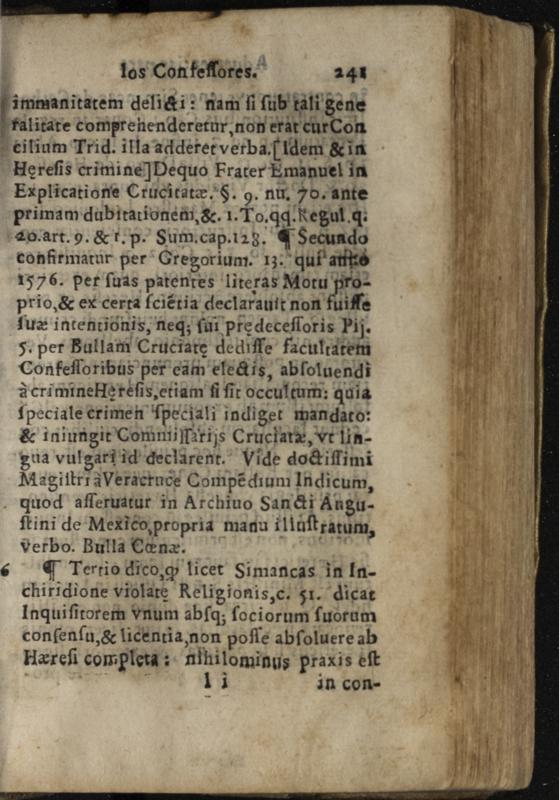 los Confessores. 241
immanitatem delicti: nam si sub tali gene
ralitate comprehenderetur, non erat cur Con
cilium Trid. illa adderet verba. [Idem & in
Hęresis crimine] De quo Frater Emanuel in
Explicatione Crucitatæ. §. 9. nu. 70. ante
primam dubitationem, &. 1. To. qq. Regul. q.
20. art. 9. & 1. p. Sum. cap. 128. ¶ Secundo
confirmatur per Gregorium. 13. qui anno
1576. per suas patentes literas Motu pro-
prio, & ex certa sciẽtia declarauit non fuisse
suæ intentionis, neq; sui prędecessoris Pij.
5. per Bullam Cruciatę dedisse facultatem
Confessoribus per eam electis, absoluendi
à crimine Hęresis, etiam si sit occultum: quia
speciale crimen speciali indiget mandato:
& iniungit Commissarijs Cruciatæ, vt lin-
gua vulgari id declarent. Vide doctissimi
Magistri à Veracruce Compẽdium Indicum,
quod asseruatur in Archiuo Sancti Augu-
stini de Mexico, propria manu illustratum,
verbo. Bulla Cœnæ.
6 ¶ Tertio dico, ꝙ licet Simancas in In-
chiridione violatę Religionis, c. 51. dicat
Inquisitorem vnum absq; sociorum suorum
consensu, & licentia, non posse absoluere ab
Hæresi completa: nihilominus praxis est
l i in con-